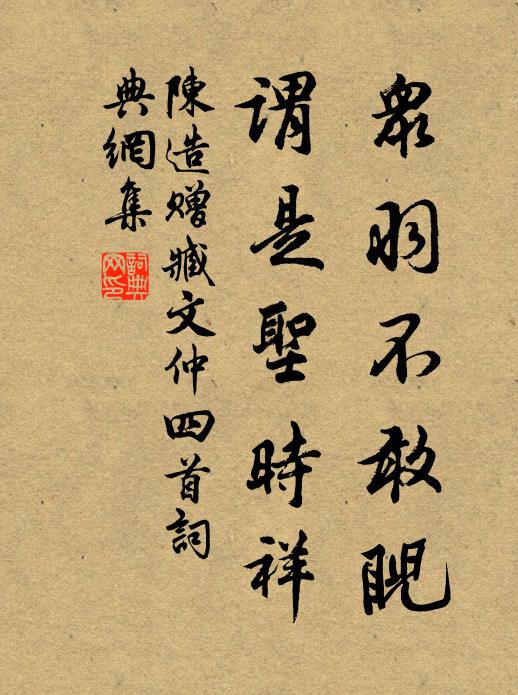 眾羽不敢睨
謂是聖時祥
陳造贈臧文仲四首詞
典網集
詞典
网印